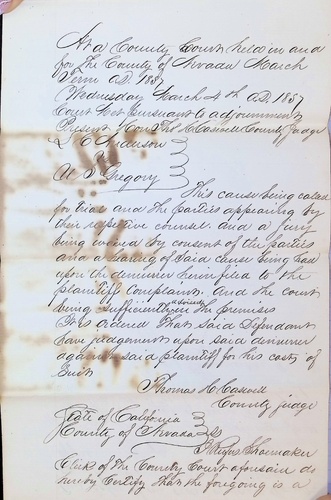 At a County Court held in and
for The County of Nevada March
Term A.D. 1857
Wednesday March 4th A.D. 1857
Court Met pursuant to adjournment
Present Hon Thos H Caswell County Judge
L O Anderson
vs
U S Gregory
This cause being called
for trial and the parties appearing by
their respective counsel and a jury
being waived by consent of the parties
and a hearing of said cause being had
upon the demurrer herein filed to the
plaintiff complaint. And the court
being sufficiently advised in the premises
It is ordered That said Defendant
have judgement upon said demurrer
against said plaintiff for his costs of
Suit
Thomas H Caswell
County Judge
State of California
County of Nevada ss
I Rufus Shoemaker
Clerk of The County Court aforesaid do
hereby Certify That the foregoing is a